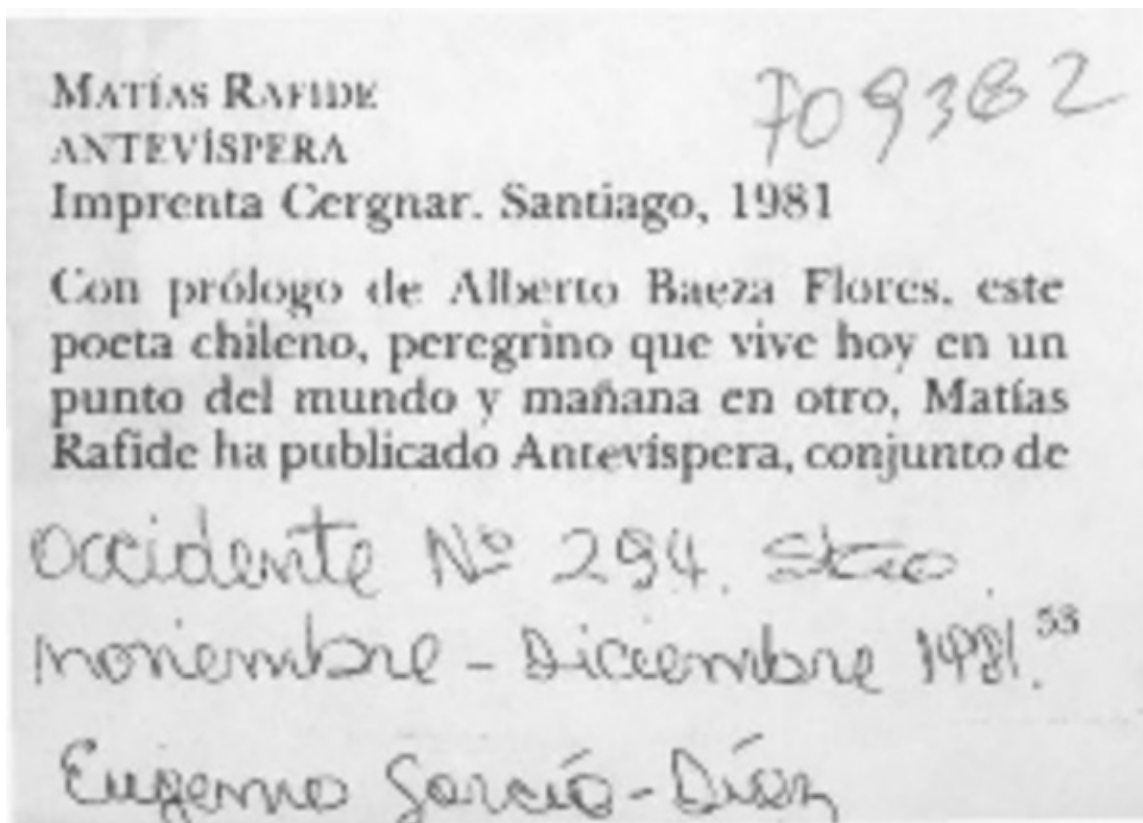 MATÍAS RAFIDE
709382
ANTEVÍSPERA
Imprenta Cergnar. Santiago, 1981
Con prólogo de Alberto Baeza Flores, este
poeta chileno, peregrino que vive hoy en un
punto del mundo y mañana en otro, Matías
Rafide ha publicado Antevíspera, conjunto de
Occidente Nº 294. Stgo.
noviembre - Diciembre 1981.
53
Eugenio García-Díaz